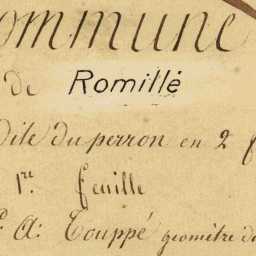 ommune
de Romillé
dite du perron en 2 f
1re. feuille
A: Touppé geomètre d